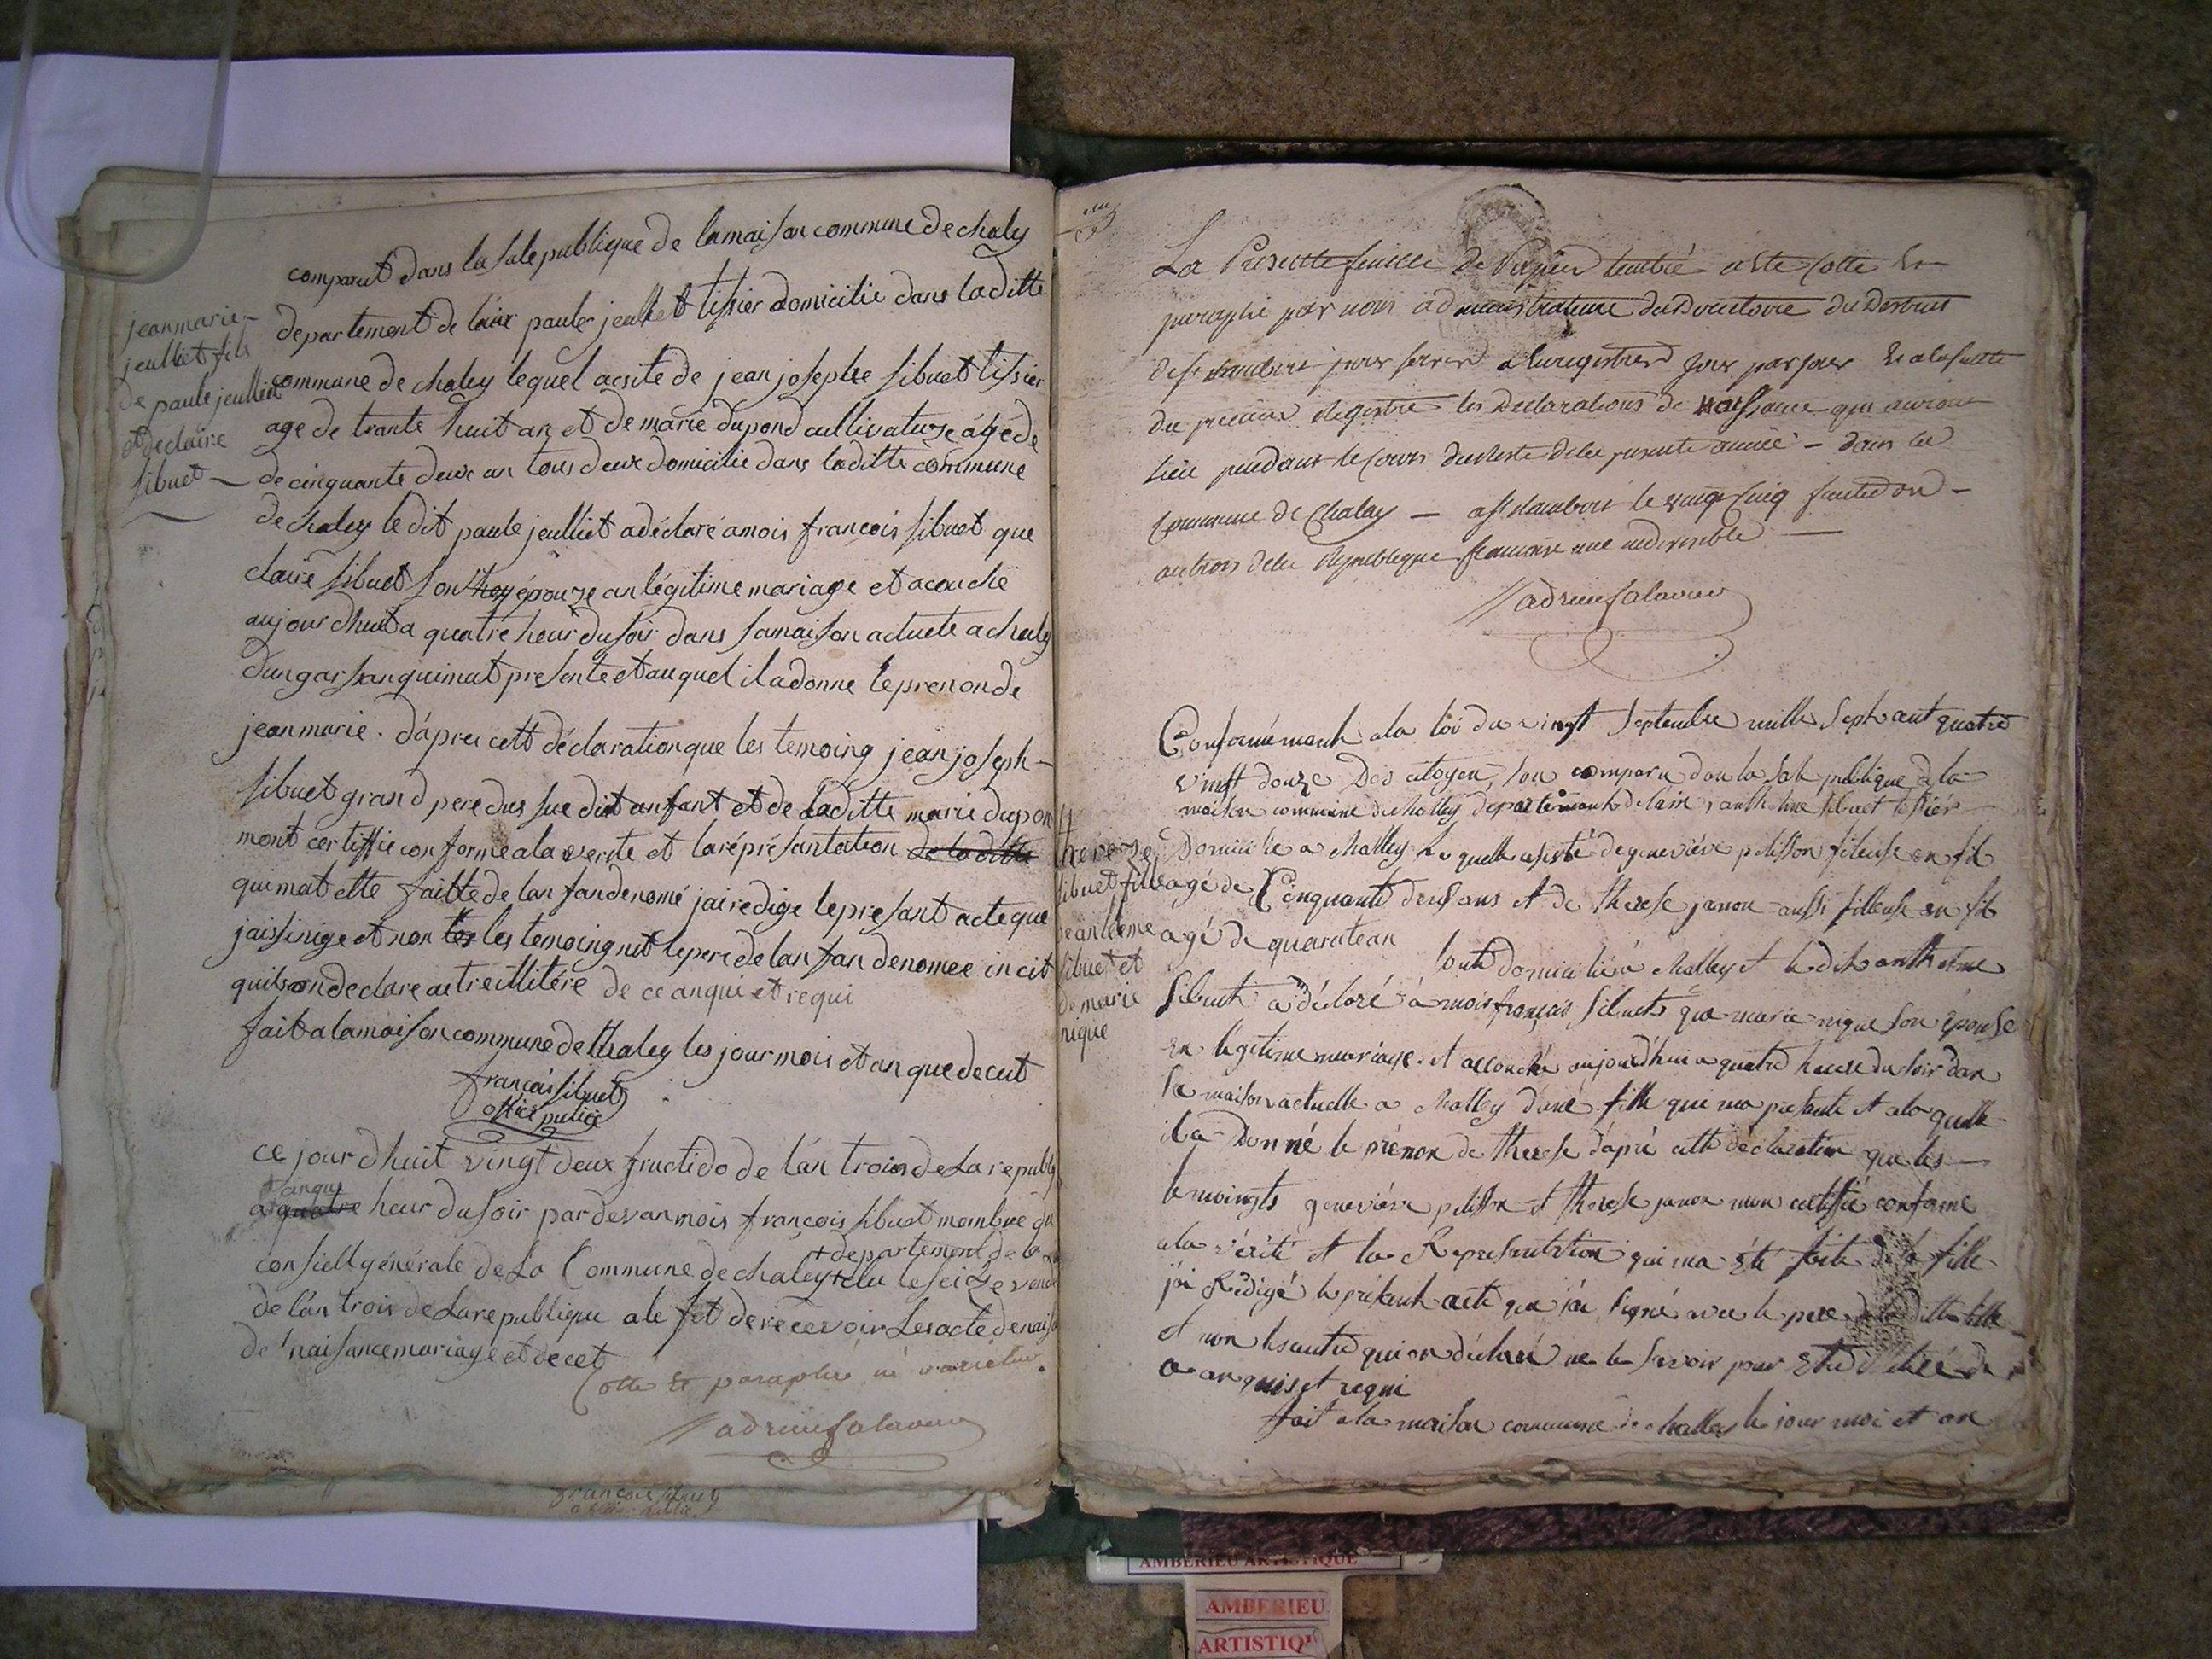 comparut dans la sale publique de lamaison commune de chaley
departement de l'ain paule jeulliet tissier domicilie dans laditte
commune de chaley lequel acsité de jean josephe sibuet tissier
age de trante huit an et de marie dupond cultivatrise agé de
de cinquante deux an tous deux domicilie dans laditte commune
de chaley le dit paule jeulliet adéclaré amois francois sibuet que
claire sibuet son épouze an légitime mariage et acouché
aujourdhuit a quatre heur dusoir dans samaison actuele a chaley
dun garsan quimat presenté et auquel iladonne leprenon de
jean marie . d'aprer cett déclaration que les temoing jean joseph -
sibuet grand pere dus sue dit anfant et de laditte marie dupon
mont certiffie conforme ala verite et la réprésantation de laditte
quimat ette faitte de lanfan denomé jai redige lepresant acte que
jai sinige et non les les temoing nit lepere de lanfan denomee in cit
quilson declare aetre illitére de ce anqui et requi
fait a lamaison commune de chaley les jour mois et an que decut
francois sibuet
offici publice
jean marie -
jeulliet fils
de paule jeulliet
et de claire
sibuet -
ce jour dhuit vingt deux fructido de l'an trois de La republi
anque
a quatre heur dusoir par devan mois francois sibuet membre du
consiell générale de La Commune de chaley elu le seize
+ departement de la
de l'an trois de Larepublique ale fet de recevoir Les acte de nais
de naisance mariage et decet
Cotté et paraphé ne varietur
francois sibuet
La Presente feuille de Papier timbré a été Cotté Et
paraphé par nous administrateur du Directoire du District
de St rambert pour servir a Enregistrer jour par jour Et a la suitte
du premier Registre les Declarations de Naissance qui auront
lieu pendant le Cours du Reste de la presente année - dans la
Commune de Chaley - a St rambert le vingt Cinq fructidor -
an trois de la Republique francaise une indivisible -
Conformémant ala loi du vingt Septembre mille Sept cent quatre
vingt douze Des citoyen, son comparu dan la sale publique de la
maison commune de challey departemank de l'ain anthelme sibuet tissier
Domicilie a challey lequelle asisté de genevieve pelisson fileuse en fil
agé de Cinquante deux ans et de therese janon aussi filleuse en fil
agé de quarantean toute domicilié a challey et le dit anthelme
Sibuet a déclaré a mois françois sibuet que marie nique son épouse
En legitime mariage et accouché aujourd'hui a quatre heure du soir dan
sa maison actuelle a challey d'une fille qui ma presenté et a la quelle
il a Donné le prénon de therese d'apré cette déclaration que les
temoingts genevieve pelisson et therese janon mon certiffié conforme
ala vérité et la Representation qui ma été faite de la fille
j'ai Rédigé le présent acte que j'ai signé avec le pere de la ditte fille
et non les autre qui on déclaré ne le savoir pour Etre illitéré de
ce anquis et requi
fait a la maison commune de challey le jour moi et an
therese
sibuet fille
de antleme
sibuet et
de marie
nique
AMBERIEU ARTISTIQUE
AMBERIEU
ARTISTIQU